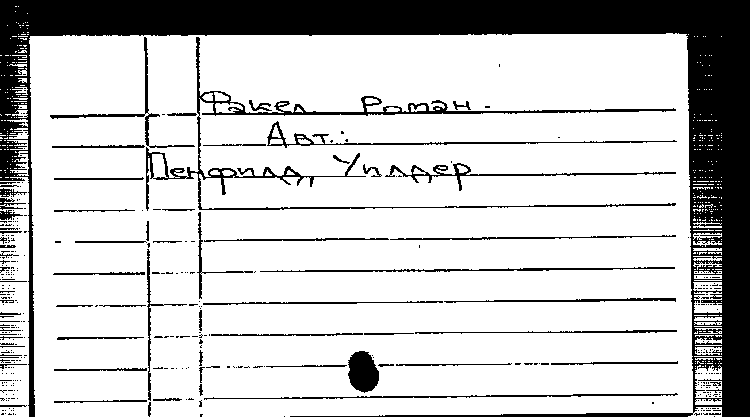 Факел. Роман.
Авт.:
Пенфилд, Уилдер